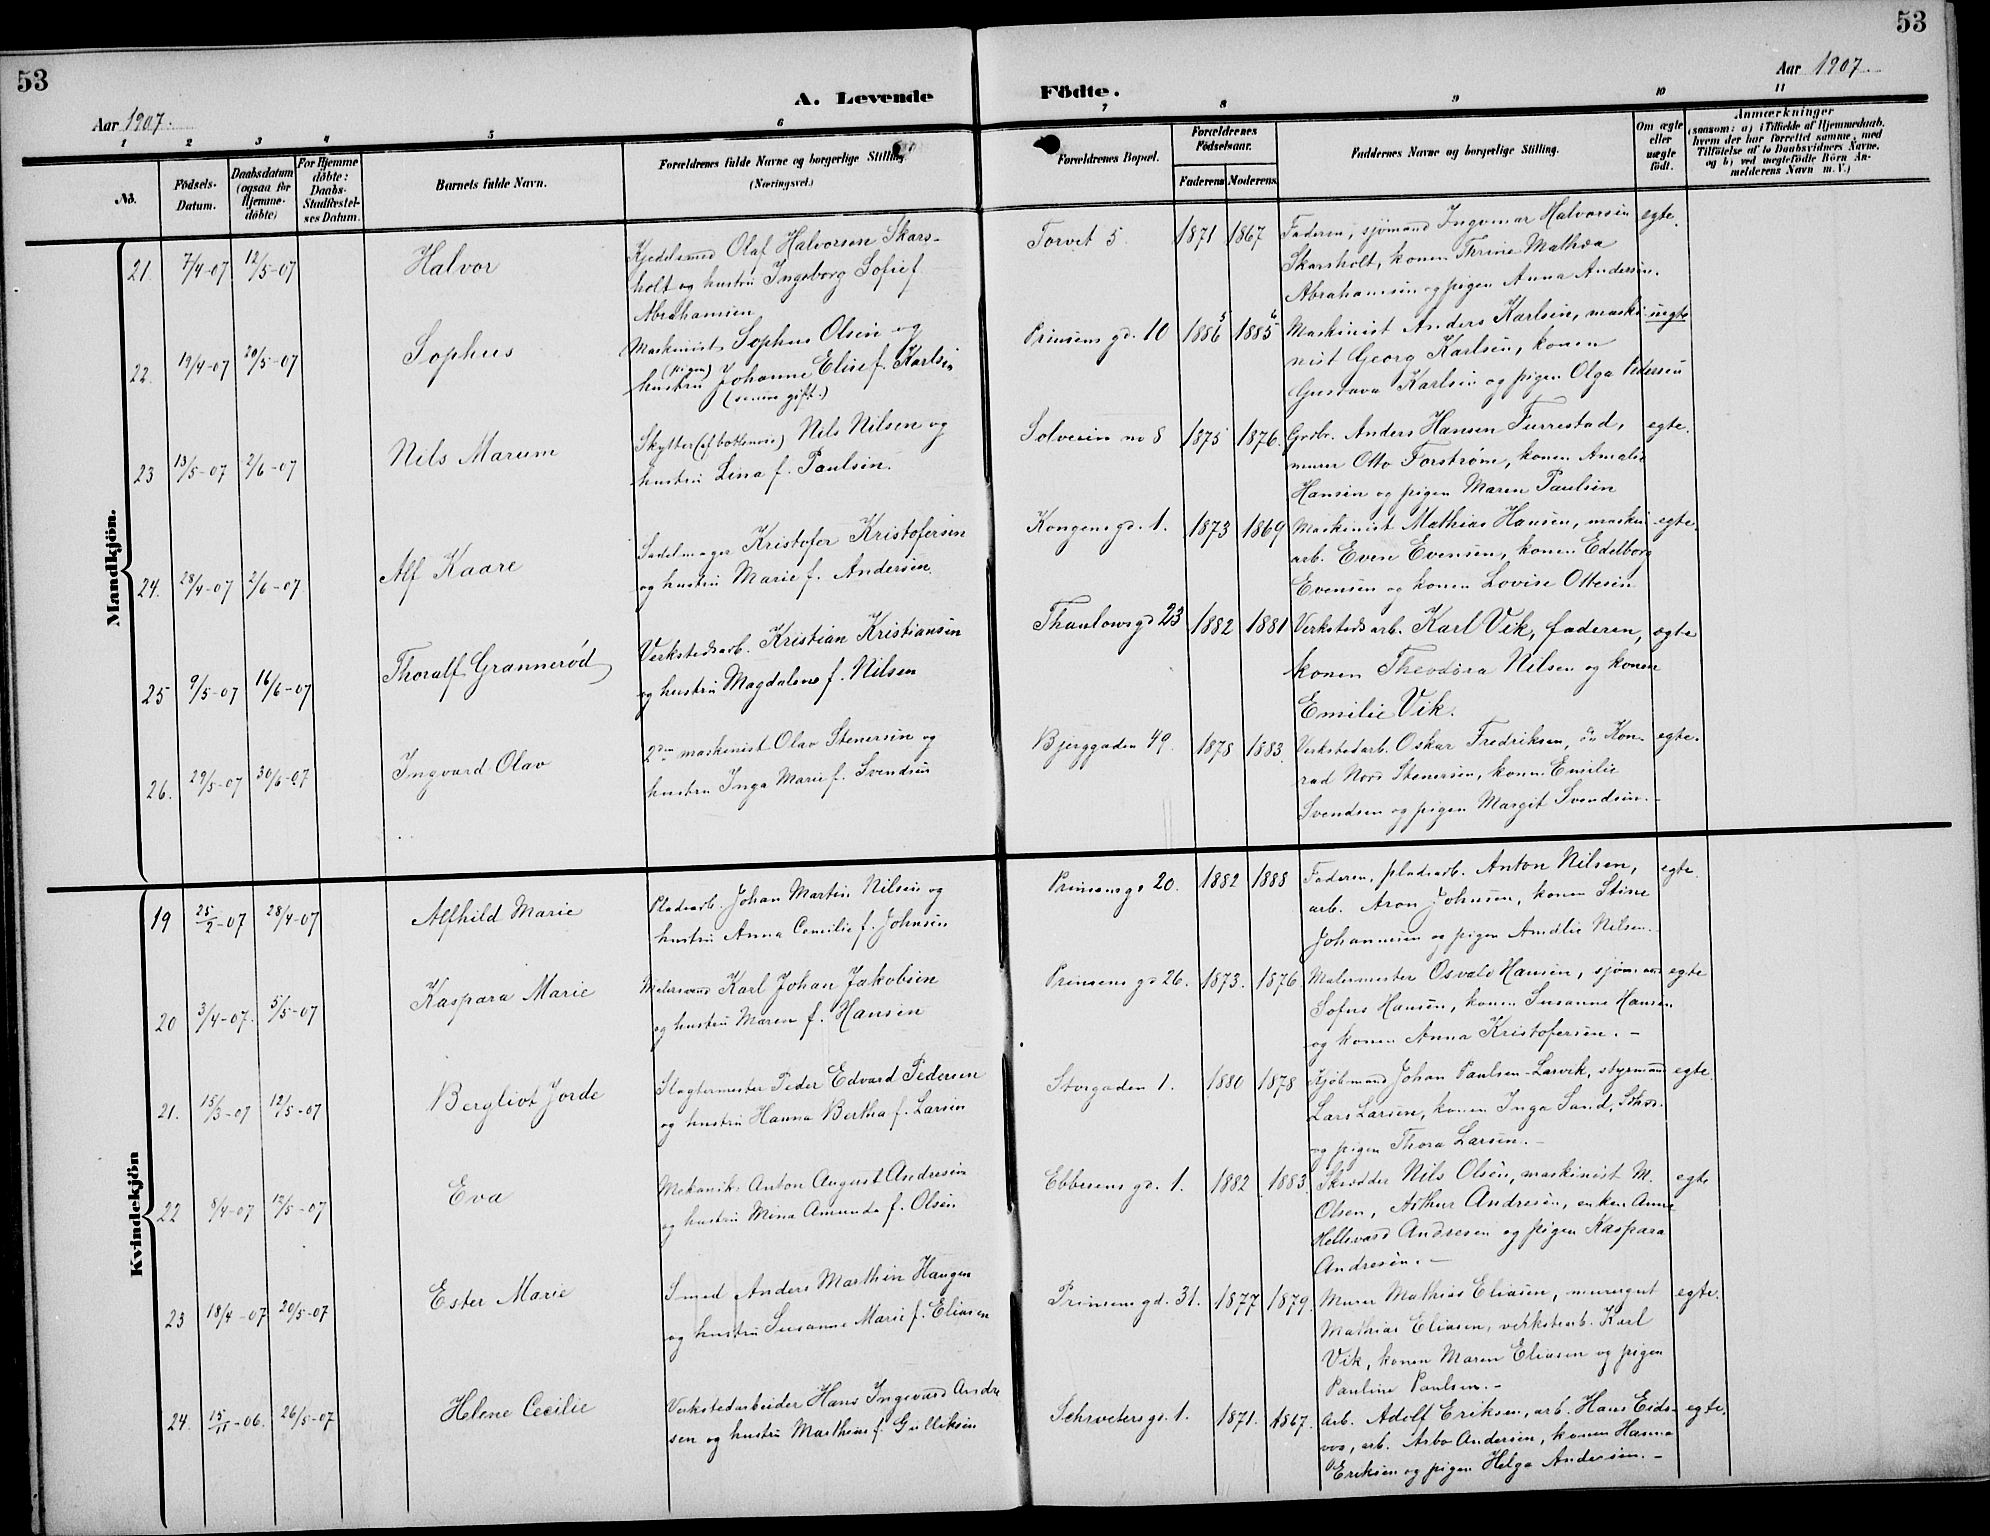 53
Aar 1907.
A. Levende
1
2
3
4
5
6
No.
Födsels-
Datum.
Daabsdatum
(ogsaa for
Hjemme-
döbte)
For Hjemme
döbte:
Daabs-
Stadfæstel-
ses Datum.
Barnets fulde Navn.
Forældrenes fulde Navne og borgerlige Stilling.
(Næringsvei.)
Mandkjön.
21.
7/4-07
12/5-07
Halvor
Kjedelsmed Olaf Halvorsen Skars-
holt og hustru Ingeborg Sofie f.
Abrahamsen
22.
19/4-07
20/5-07
Sophus
Maskinist Sophus Olsen og
(pigen)
hustru Johanne Elise f. Karlsen
(senere gift.)
23
13/5-07
2/6-07
Nils Marum
Skytter Nils Nilsen og
hustru Lina f. Paulsen.
24.
28/4-07
2/6-07
Alf Kaare
Sadelmager Kristofer Kristofersen
og hustru Marie f. Andersen.
25
9/5-07
16/6-07
Thoralf Grannerød
Verkstedsarb. Kristian Kristiansen
og hustru Magdalene f. Nilsen
26.
29/5-07
30/6-07
Ingvard Olav
2den maskinist Olav Stenersen og
hustru Inga Marie f. Svendsen
Kvindekjön
19
25/2-07
28/4-07
Alfhild Marie
Pladsarb. Johan Martin Nilsen og
hustru Anna f. Johnsen
20
3/4-07.
5/5-07
Kaspara Marie
Malersvend Karl Johan Jakobsen
og hustru Maren f. Hansen
21.
15/3-07
12/5-07
Bergliot Jorde
Slagtermester Peder Edvard Pedersen
og hustru Hanna Bertha f. Larsen
22
8/4-07
12/5-07
Eva
Mekanik. Anton August Andresen
og hustru Mina Amunda f. Olsen
23
18/4-07
20/5-07
Ester Marie
Smed Anders Marthin Haugen
og hustru Susanne Marie f. Eliasen
24.
15/11-06.
26/5-07
Helene Cecilie
Verkstedarbeider Hans Ingvard Andre
sen og hustru Marthine f. Gulliksen
53
Aar 1907
Födte.
7
8
9
10
11
Forældrenes Bopæl.
Forældrenes
Födselsaar.
Faderens
Moderens.
Faddernes Navne og borgerlige Stilling.
Om ægte
eller
uægte
födt.
Anmærkninger
(saasom: a) i Tilfælde af Hjemmedaab,
hvem der har forrettet samme, med
Tilföielse af to Daabsvidners Navne,
og b) ved uægtefödte Börn An-
melderens Navn m. V.)
Torvet 5.
1871
1867
Faderen, sjømand Ingvmar Halvorsen
Skarsholt, konen Thrine Mathea
Abrahamsen og pigen Anna Andersen.
egte.
Prinsens gd. 10
1886
5
1885
6
Maskinist Anders Karlsen, maski-
nist Georg Karlsen, konen
Gustava Karlsen og pigen Olga Pedersen
uegte
Solveien no 8
1875
1876.
Grdbr. Anders Hansen Furrestad,
murer Otto Forstrøm, konen Amalie
Hansen og pigen Maren Paulsen
egte.
Kongens gd. 1.
1873
1869
Maskinist Mathias Hansen, maskin
arb. Even Evensen, konen Edelborg
Evensen og konen Lovise Ottesen
egte.
Thaulows gd 23
1882
1881
Verksteds arb. Karl Vik, faderen,
konen Theodora Nilsen og konen
Emilie Vik.
egte
Bjerggaden 49.
1878
1883.
Verkstedarb. Oskar Fredriksen, do Kon-
rad Nord Stenersen, konen Emilie
Svendsen og pigen Margit Svendsen.-
egte.
Prinsens gd 20.
1882
1888
Faderen, pladsarb. Anton Nilsen,
arb. Aron Johnsen, konen Stine
Johannesen og pigen Amalie Nilsen.-
egte.
Prinsens gd 26.
1873.
1876.
Malermester Osvald Hansen, sjømand
Sofus Hansen, konen Susanne Hansen
og konen Anna Kristofersen.-
egte
Storgaden 1.
1880
1878
Kjøbmand Johan Paulsen-Larvik, styrmand
Lars Larsen, konen Inga Sand,
og pigen Thora Larsen.-
egte.
Ebbesens gd. 1.
1882
1883.
Skrædder Nils Olsen, maskinist M.
Olsen, Arthur Andresen, enken Anne
Hellevard Andresen og pigen Kaspara
Andresen.-
egte
Prinsens gd. 31.
1877
1879.
Murer Mathias Eliasen, murergut
Mathias Eliasen, verkstarb. Karl
Vik, konen Maren Eliasen og pigen
Pauline Paulsen.-
egte.
Schrøeters gd. 1.
1871.
1867.
Arb. Adolf Eriksen, arb. Hans Eids-
vos, arb. Arbo Andersen, konen Hanna
Eriksen og pigen Helga Andersen.-
egte.